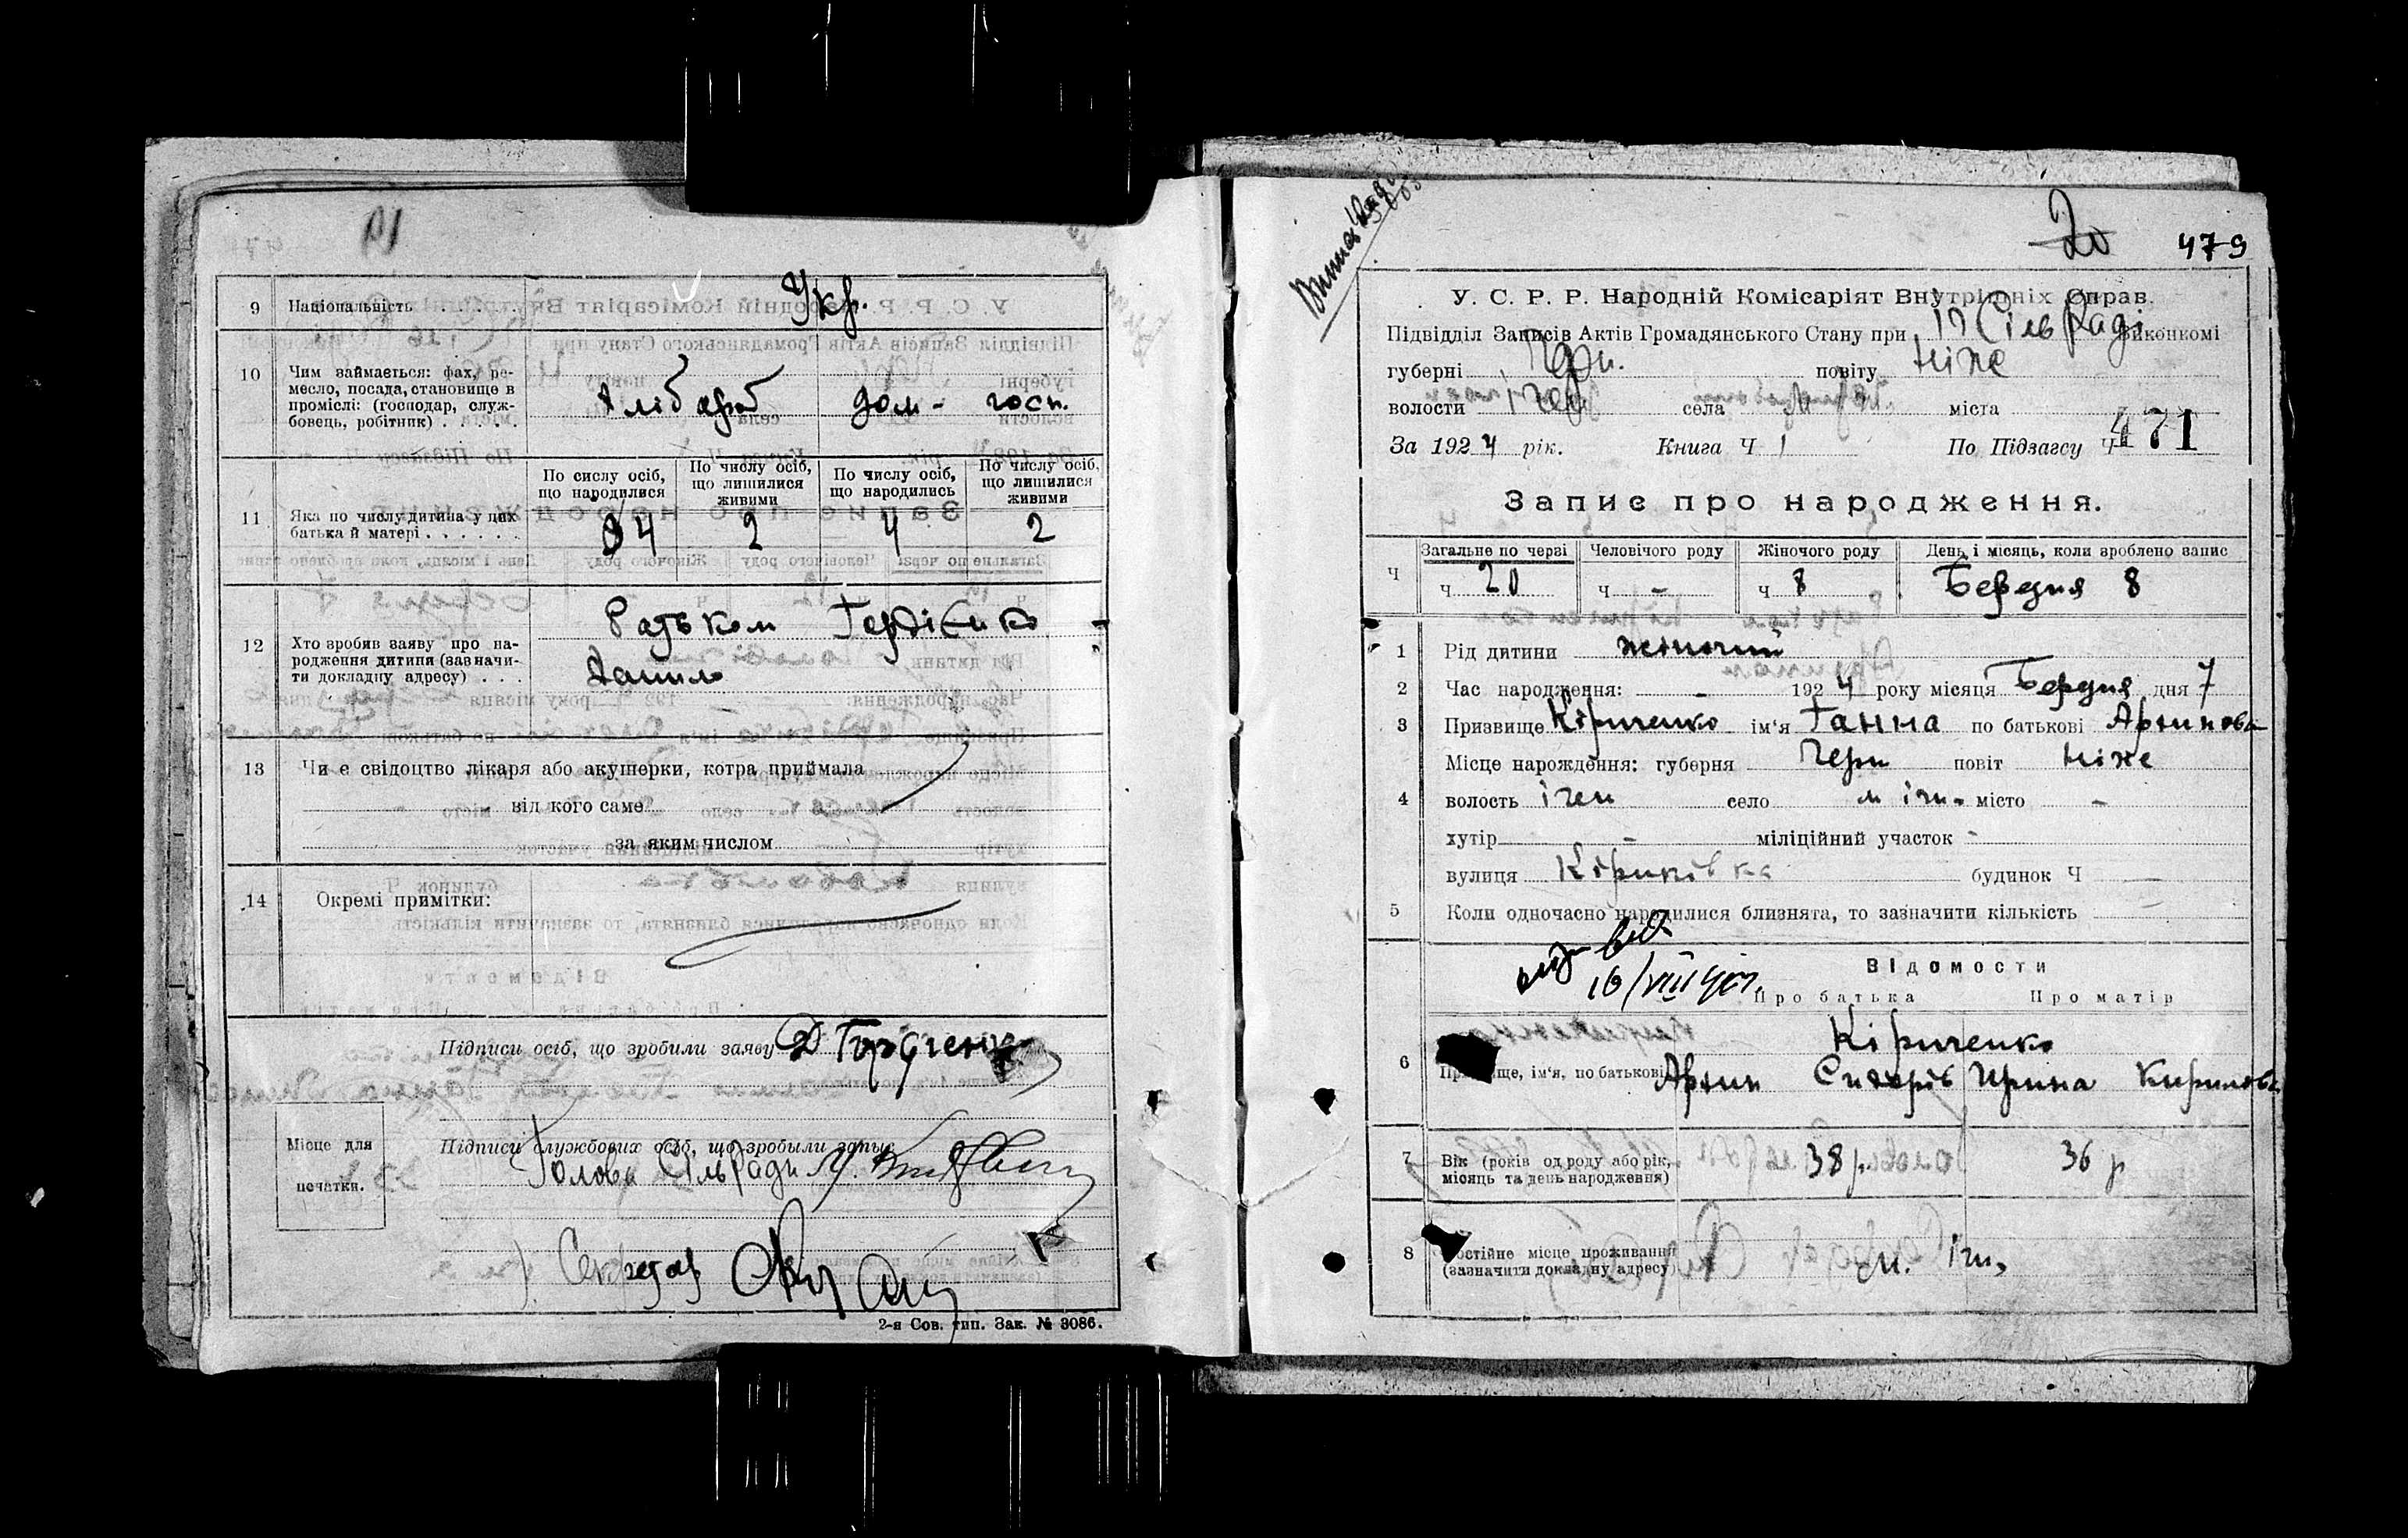 9 Національність . . . . . Укр.
10 Чим займається: фах, ре-
месло, посада, становище в
проміслі: (господар, служ-
бовець, робітник) . . . . .
Хлібороб дом- госп.
По сислу осіб, що народилися
По числу осіб, що лишилися живими
По числу осіб, що народились
По числу осіб, що лишилися живими
11 Яка по числу дитина у цих
батька й матері . . . . . .
4 2 4 2
12 Хто зробив заяву про на-
родження дитини (зазначи-
ти докладну адресу) . . .
Батьком Гордієнко
Данило
13 Чи є свідоцтво лікаря або акушерки, котра приймала
від кого саме
за яким числом
14 Окремі примітки:
Підписи осіб, що зробили заяву Д Гордієнко
Місце для
печатки.
Підписи службових осіб, що зробыли запыс
Голова СільРади
Секретар
2-я Сов. тип. Зак. № 3086.
20 479
У. С. Р. Р. Народній Комісаріят Внутрішніх Справ.
Підвідділ Записів Актів Громадянського Стану при ІчСільРаді виконкомі
губерні Чрн. повіту Ніже
волости села міста
За 1924 рік. Книга Ч 1 По Підзагсу Ч 471
Запис про народження.
Ч
Загальне по черзі
Человічого роду
Жіночого роду
День і місяць, коли зроблено запис
Ч 20 Ч - Ч 8 Березня 8
1 Рід дитини жіночий
2 Час народження: - 1924 року місяця Березня дня 7
3 Призвище Кіриченко ім'я Ганна по батькові Архипова
Місце народження: губерня Черн повіт Ніже
4 волость Ічен село м Ічн. місто -
хутір - міліційний участок -
вулиця Кіриківка будинок Ч —
5 Коли одночасно народилися близнята, то зазначити кількість —
16/VIII
Відомости
Про батька Про матір
Кіриченко
6 Призвище, ім'я, по батькові Архип Сидорів Ирина Кирилова
7 Вік (років од роду або рік,
місяць та день народження)
38 р. 36 р
8 Постійне місце проживання
(зазначити докладну адресу)
м. Ічн.